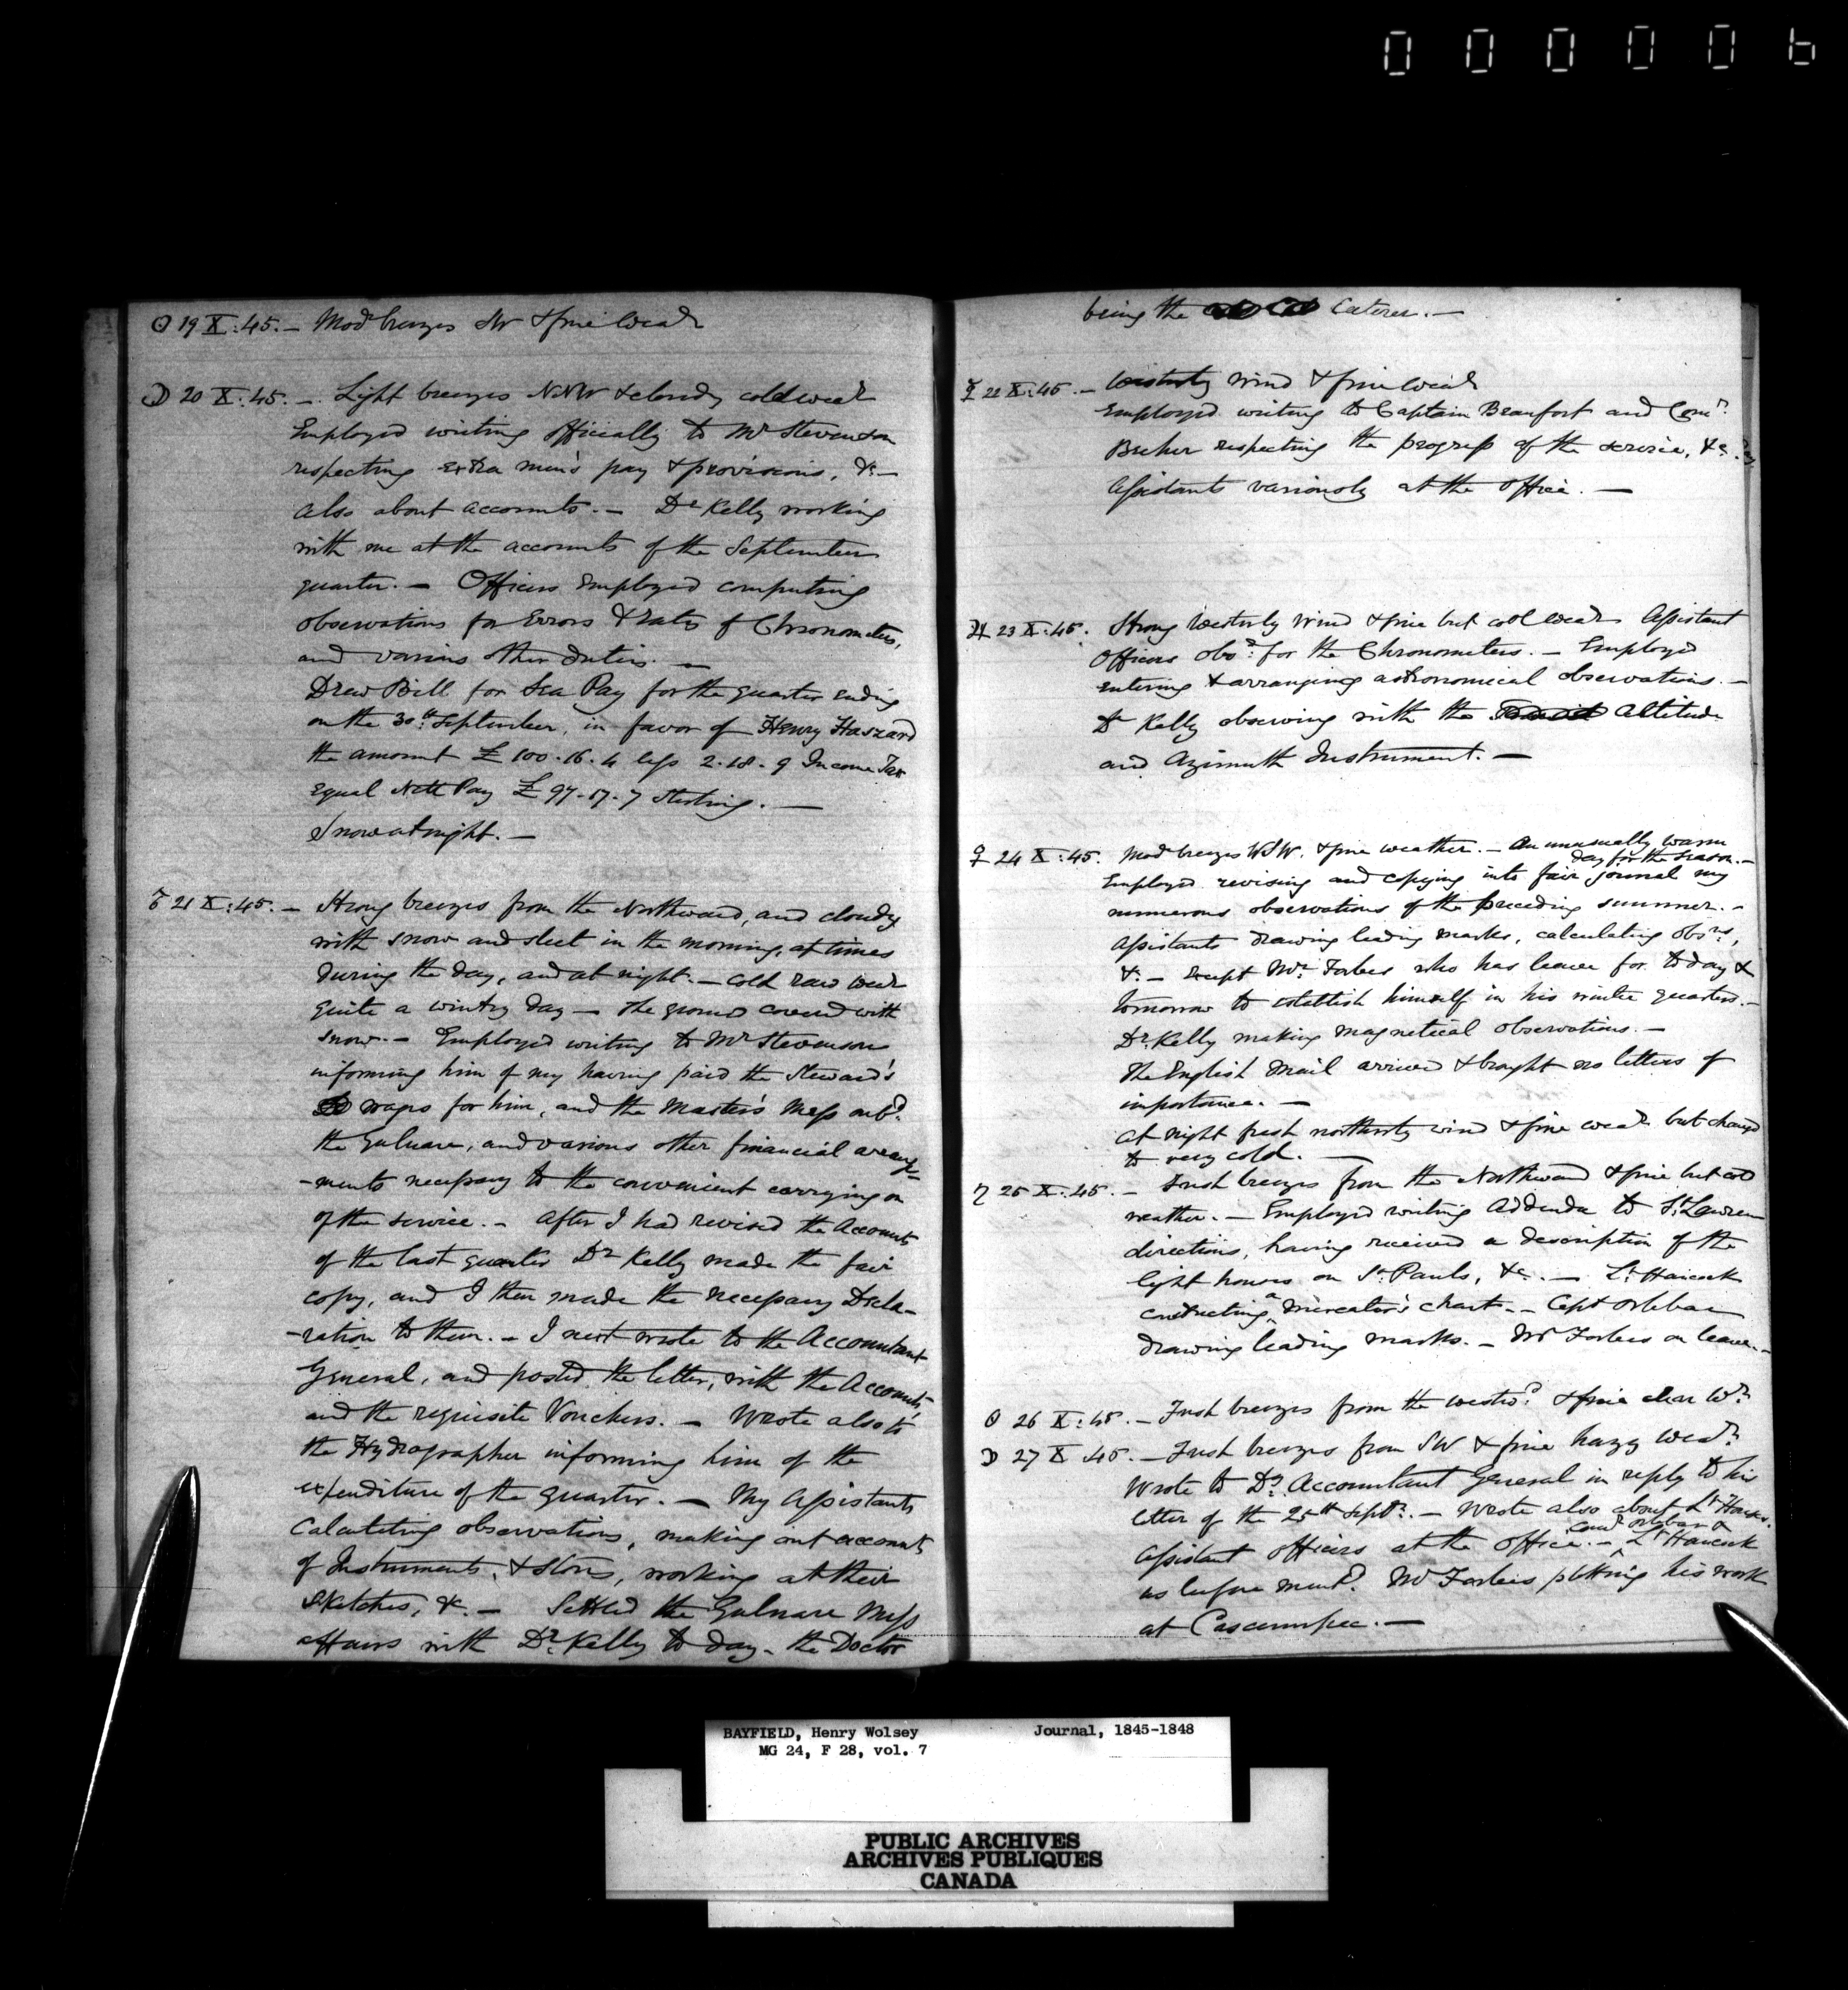 000006
☉ 19 X:45.— Mod.r breezes SW & fine Weat.r
☽ 20 X:45.— Light breezes NNW & cloudy cold weat.r
Employed writing officially to Mr Stevenson
respecting extra men's pay & provisions, &c—
also about accounts.— Dr Kelly working
with me at the accounts of the September
quarter.— Officers employed computing
observations for Errors & Rates of Chronometers,
and various other duties.—
Drew Bill for Sea Pay for the quarter ending
on the 30th September, in favor of Henry Haszard
the amount £100.16.4 less 2.18.9 Income Tax
equal Nett Pay £97.17.7 Sterling.—
Snow at night.—
♂ 21 X:45.— Strong breezes from the Northward, and cloudy
with snow and sleet in the morning, at times
during the day, and at night.— Cold raw weat.r
quite a wintry day — the ground covered with
snow.— Employed writing to Mr Stevenson
informing him of my having paid the Steward's
wages for him, and the Master's Mess onb.d
the Gulnare, and various other financial arrange-
-ments necessary to the convenient carrying on
of the service.— After I had revised the Accounts
of the last quarter Dr Kelly made the fair
copy, and I then made the necessary Decla-
-ration to them.— I next wrote to the Accountant
General, and posted the letter, with the Accounts,
and the requisite Vouchers.— Wrote also to
the Hydrographer informing him of the
expenditure of the quarter.— My Assistants
Calculating observations, making out accounts
of Instruments, & stores, working at their
sketches, &c.— Settled the Gulnare Mess
affairs with Dr. Kelly to day - the Doctor
being the Caterer.—
☿ 22 X:45.— Westerly Wind & fine Weat.r
Employed writing to Captain Beaufort and Com.r
Becher respecting the progress of the service, &c.
Assistants variously at the office.—
♃ 23 X:45. Strong Westerly Wind & fine but cold Weat.r Assistant
Officers obs.g for the Chronometers.— Employed
entering & arranging astronomical observations.—
Dr Kelly observing with the Altitude
and Azimuth Instrument.—
♀ 24 X:45. Mod breezes WSW. & fine weather.— An unusually warm
day for the season.—
Employed revising and copying into fair journal my
numerous observations of the preceding summer.—
Assistants drawing leading marks, calculating obs.ns,
&c.— Except Mr. Forbes who has leave for to day &
tomorrow to establish himself in his winter quarters.—
Dr. Kelly making magnetical observations.—
The English Mail arrived & brought no letters of
importance.—
At night fresh northerly wind & fine weat.r but changed
to very cold.—
♄ 25 X:45.— Fresh breezes from the Northward & fine but cold
weather.— Employed writing Addenda to St. Lawrence
directions, having received a description of the
light houses on St. Pauls, &c.— Lt. Hancock
constructing a Mercator's chart.— Capt Orlebar
drawing leading marks.— Mr Forbes on leave.—
☉ 26 X:45.— Fresh breezes from the westw.d & fine clear W.r
☽ 27 X 45.— Fresh breezes from SW & fine hazy Weat.r
Wrote to D.y Accountant General in reply to his
letter of the 25th Sept.r.— Wrote also about Lt Hancock.
Assistant officers at the office.— Com.r Orlebar & Lt Hancock
as before ment.d Mr Forbes plotting his work
at Cascumpec.—
BAYFIELD, Henry Wolsey Journal, 1845-1848
MG 24, F 28, vol. 7
PUBLIC ARCHIVES
ARCHIVES PUBLIQUES
CANADA